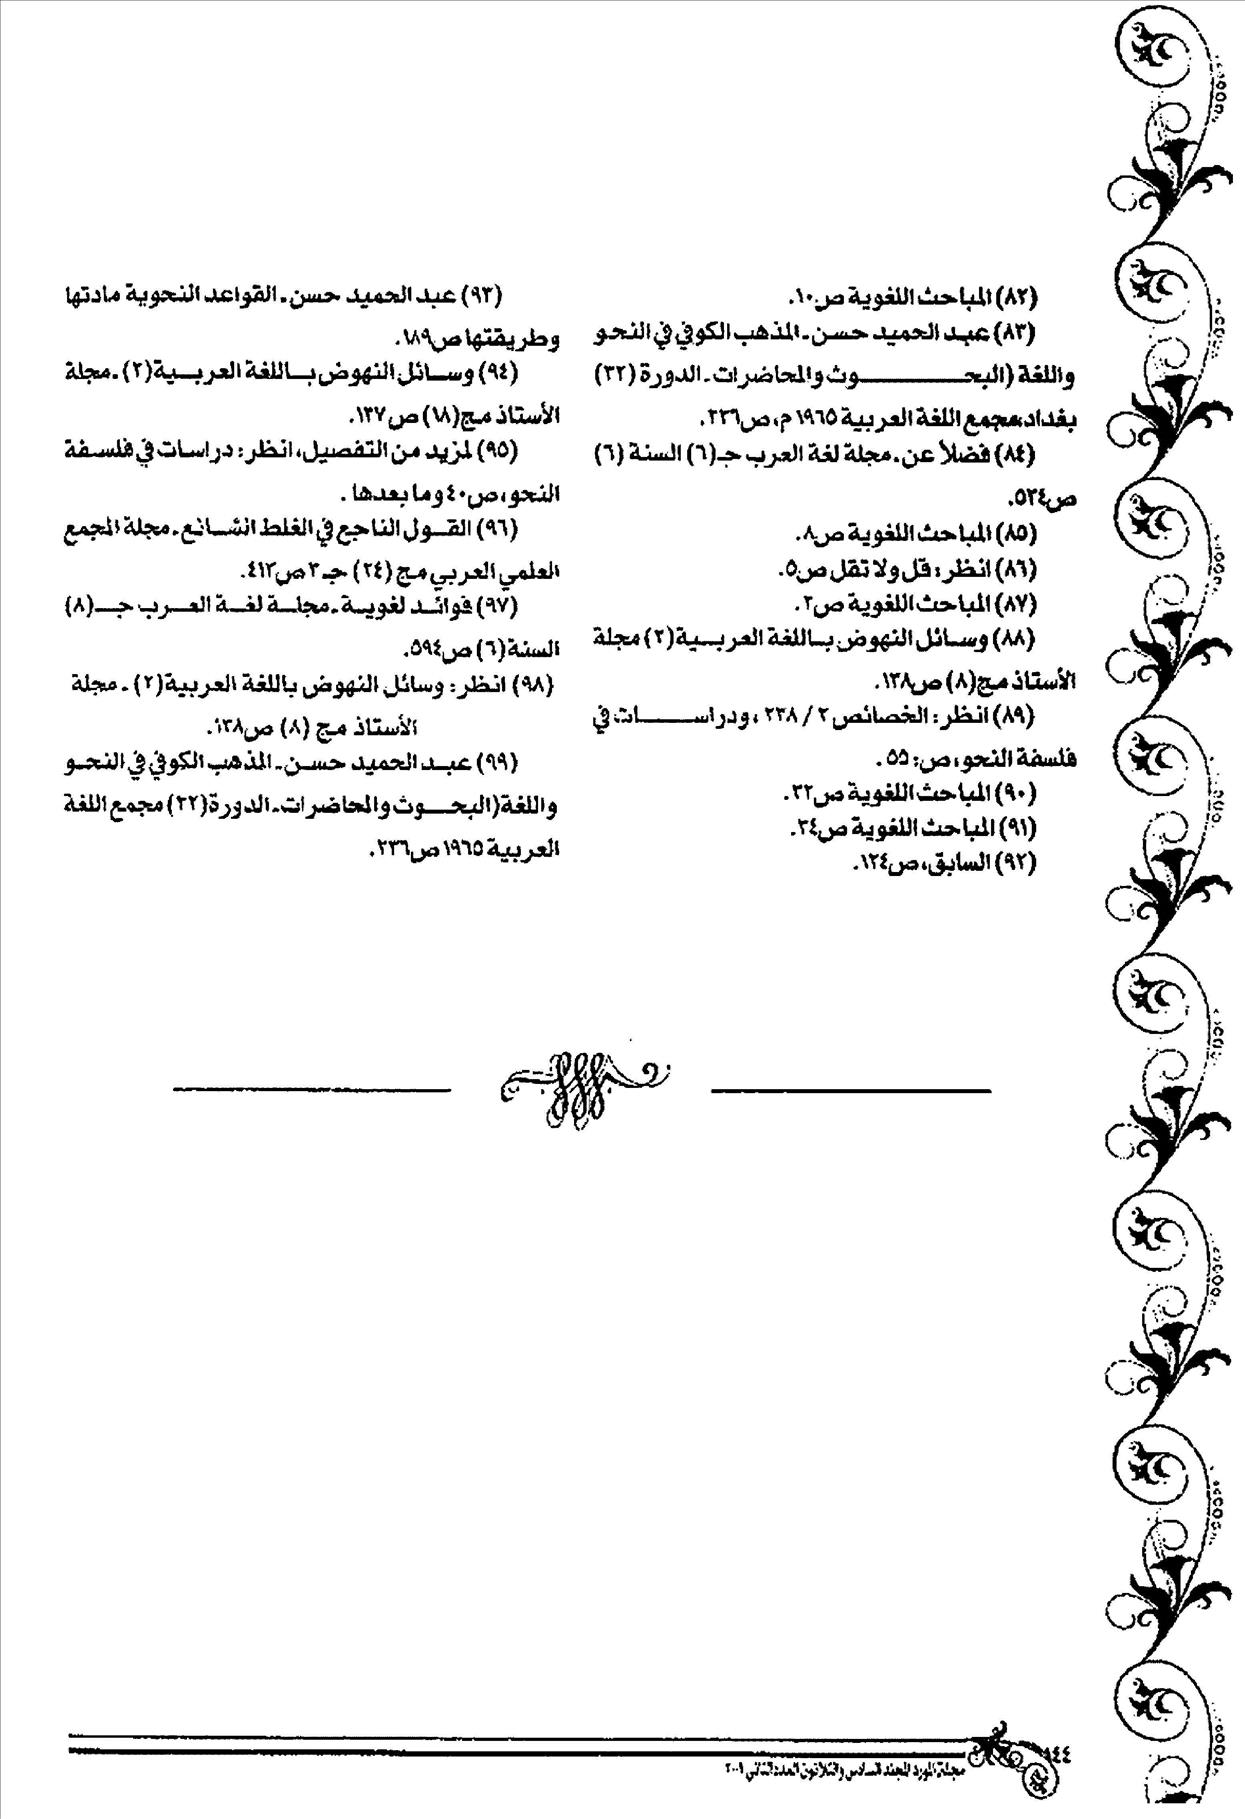 (٨٢) المباحث اللغوية ص١٠.
(٨٣) عبد الحميد حسن ـ المذهب الكوفي في النحو
واللغة (البحـــوث والمحاضرات ـ الدورة (٣٢)
بغداد، مجمع اللغة العربية ١٩٦٥م، ص٢٣٦.
(٨٤) فضلاً عن ـ مجلة لغة العرب جـ(٦) السنة (٦)
ص٥٢٤.
(٨٥) المباحث اللغوية ص٨.
(٨٦) انظر: قل ولا تقل ص٥.
(٨٧) المباحث اللغوية ص٢.
(٨٨) وسـائل النهوض بـاللغة العربـية(٢) مجلة
الأستاذ مج(٨) ص١٣٨.
(٨٩) انظر: الخصائص ٢ / ٢٣٨ ، ودراســـات في
فلسفة النحو، ص: ٥٥ .
(٩٠) المباحث اللغوية ص٣٢.
(٩١) المباحث اللغوية ص٢٤.
(٩٢) السابق، ص١٢٤.
(٩٣) عبد الحميد حسن ـ القواعد النحوية مادتها
وطريقتها ص١٨٩.
(٩٤) وسـائل النهوض بـاللغة العربـية(٢) ـ مجلة
الأستاذ مج(١٨) ص١٣٧.
(٩٥) لمزيد من التفصيل، انظر: دراسـات في فلسـفة
النحو، ص٤٠ وما بعدها .
(٩٦) القـول الناجع في الغلط الشـائع ـ مجلة المجمع
العلمي العربي مج (٢٤) جـ٣ ص٤١٣.
(٩٧) فوائـد لغويـة ـ مجلـة لغـة العـرب جـ(٨)
السنة (٦) ص٥٩٤.
(٩٨) انظر: وسائل النهوض باللغة العربية(٢) ـ مجلة
الأستاذ مج (٨) ص١٣٨.
(٩٩) عبـد الحميد حسـن ـ المذهب الكوفي في النحـو
واللغة(البحـوث والمحاضرات ـ الدورة(٢٢) مجمع اللغة
العربية ١٩٦٥ ص٢٣٦.
مجلة المورد المجلد السادس والثلاثون العدد الثاني ٢٠٠٩